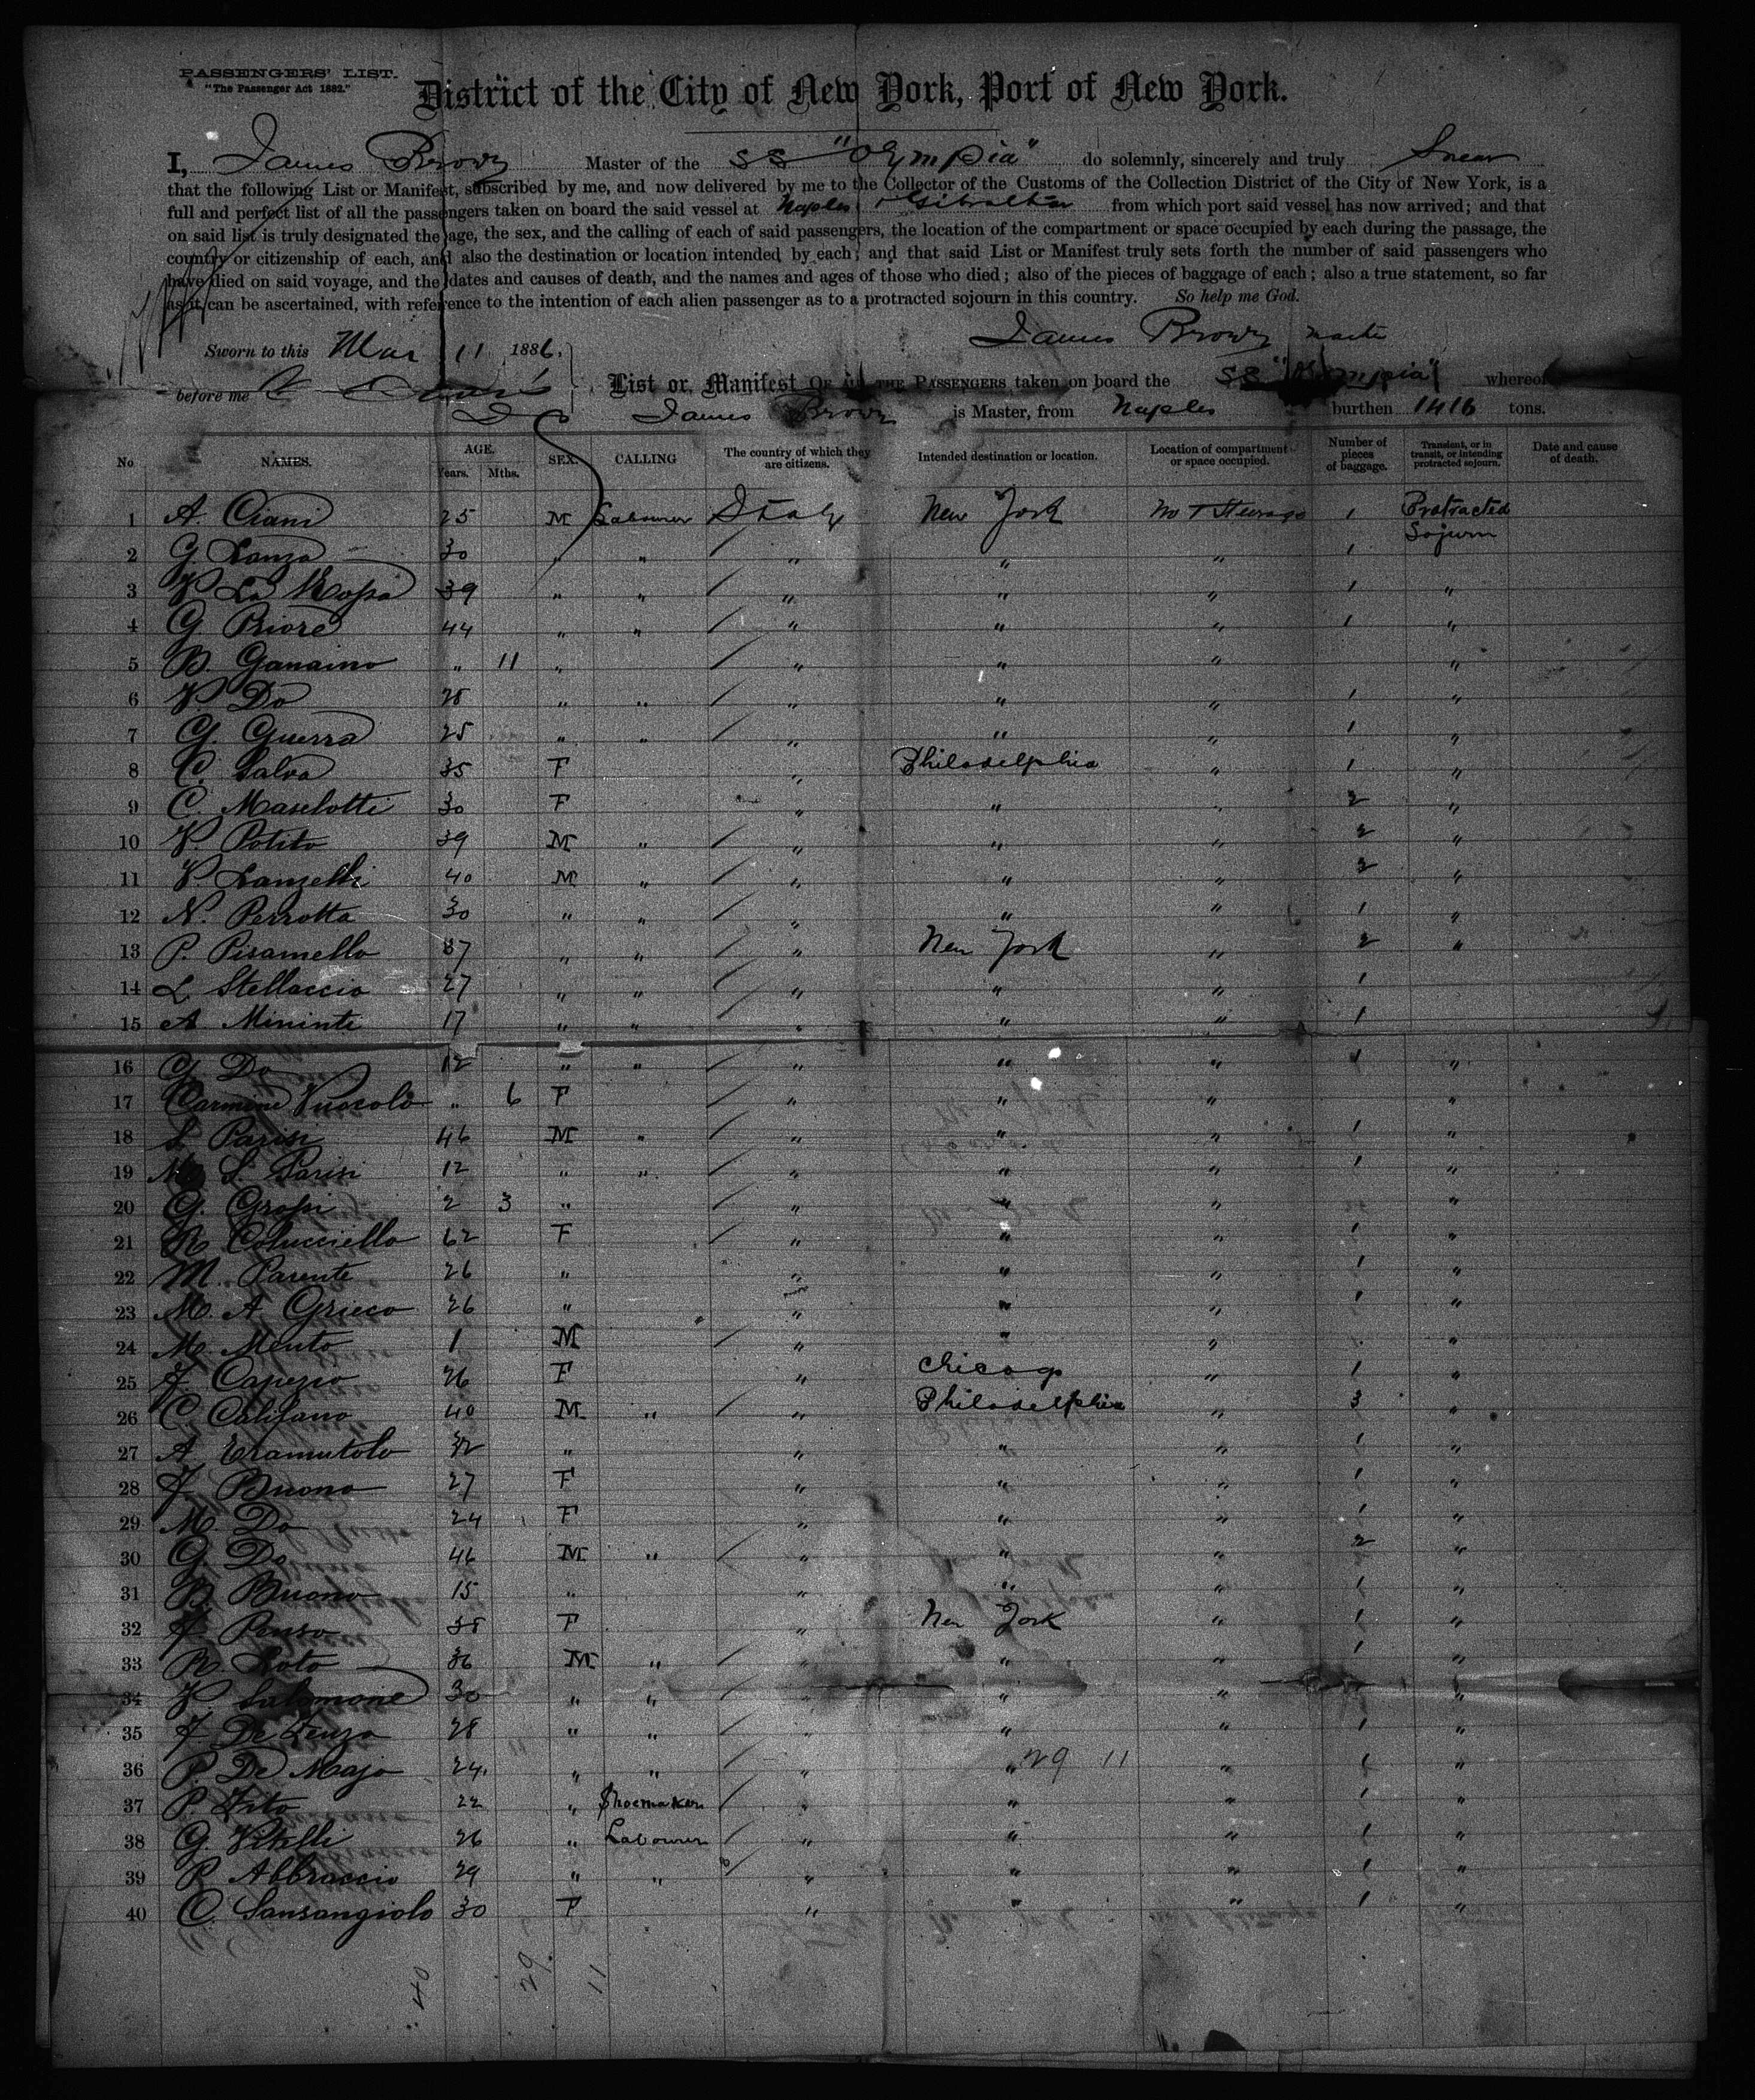 PASSENGERS' LIST.
"The Passenger Act 1882."
District of the City of New York, Port of New York.
I, James Brown Master of the SS "Olympia" do solemnly, sincerely and truly Swear
that the following List or Manifest, subscribed by me, and now delivered by me to the Collector of the Customs of the Collection District of the City of New York, is a
full and perfect list of all the passengers taken on board the said vessel at Naples & Gibraltar from which port said vessel has now arrived; and that
on said list is truly designated the age, the sex, and the calling of each of said passengers, the location of the compartment or space occupied by each during the passage, the
country or citizenship of each, and also the destination or location intended by each; and that said List or Manifest truly sets forth the number of said passengers who
have died on said voyage, and the dates and causes of death, and the names and ages of those who died; also of the pieces of baggage of each; also a true statement, so far
as it can be ascertained, with reference to the intention of each alien passenger as to a protracted sojourn in this country. So help me God.
James Brown
Sworn to this Mar 11 1886,
before me
List or Manifest OF ALL THE PASSENGERS taken on board the SS "Olympia" whereof
James Brown is Master, from Naples burthen 1416 tons.
No NAMES. AGE. Years. Mths. SEX. CALLING The country of which they are citizens. Intended destination or location. Location of compartment or space occupied. Number of pieces of baggage. Transient, or in transit, or intending protracted sojourn. Date and cause of death.
1 A. Ciani 25 M Labourer Italy New York No 1 Steerage 1 Protracted Sojurn
2 G Lanza 30 " " " " " 1
3 V La Rossa 39 " " " " " 1 "
4 G Priore 44 " " " " " 1 "
5 B. Ganaino " 11 " " " " "
6 V. Do 28 " " " " " 1 "
7 G. Guerra 25 " " " " " 1 "
8 C. Salva 35 F " Philadelphia " 1 "
9 C. Maselotti 30 F " " " 2 "
10 V. Potito 39 M " " " " 2 "
11 V. Lanzelli 40 M " " " " 2 "
12 N. Perrotta 30 " " " " " 1 "
13 P. Pisamello 37 " " " New York " 2 "
14 L Stellaccio 27 " " " " " 1
15 A Mininti 17 " " " " " 1
16 G Do 12 " " " " " 1 "
17 Carmine Vuocolo " 6 F " " " "
18 S Parisi 46 M " " " " 1 "
19 M. S. Parisi 12 " " " " " 1 "
20 G. Grossi 2 3 " " " " "
21 R Colucciello 62 F " " " 1 "
22 M. Parente 26 " " " " 1 "
23 M. A Grieco 26 " " " " 1 "
24 M. Mento 1 M " " " "
25 F Capezio 26 F " Chicago " 1 "
26 C Califano 40 M " " Philadelphia " 3 "
27 A Eramutolo 32 " " " " 1 "
28 F Buono 27 F " " " 1 "
29 M. Do 24 F " " " 1 "
30 G. Do 46 M " " " " 2 "
31 B Buono 15 " " " " 1 "
32 F Penso 38 F " New York " 1 "
33 R. Loto 36 M " " " " 1 "
34 V Salomone 30 " " " " " "
35 F De Lenzo 28 " " " " " 1 "
36 P. De Majo 24 " " " " 29 11 " 1 "
37 P. Zito 22 " Shoemaker " " " 1 "
38 G. Vitelli 26 " Labourer " " " 1 "
39 P Abbraccio 29 " " " " " 1 "
40 C. Sansangiolo 30 F " " " 1 "
40 29 11